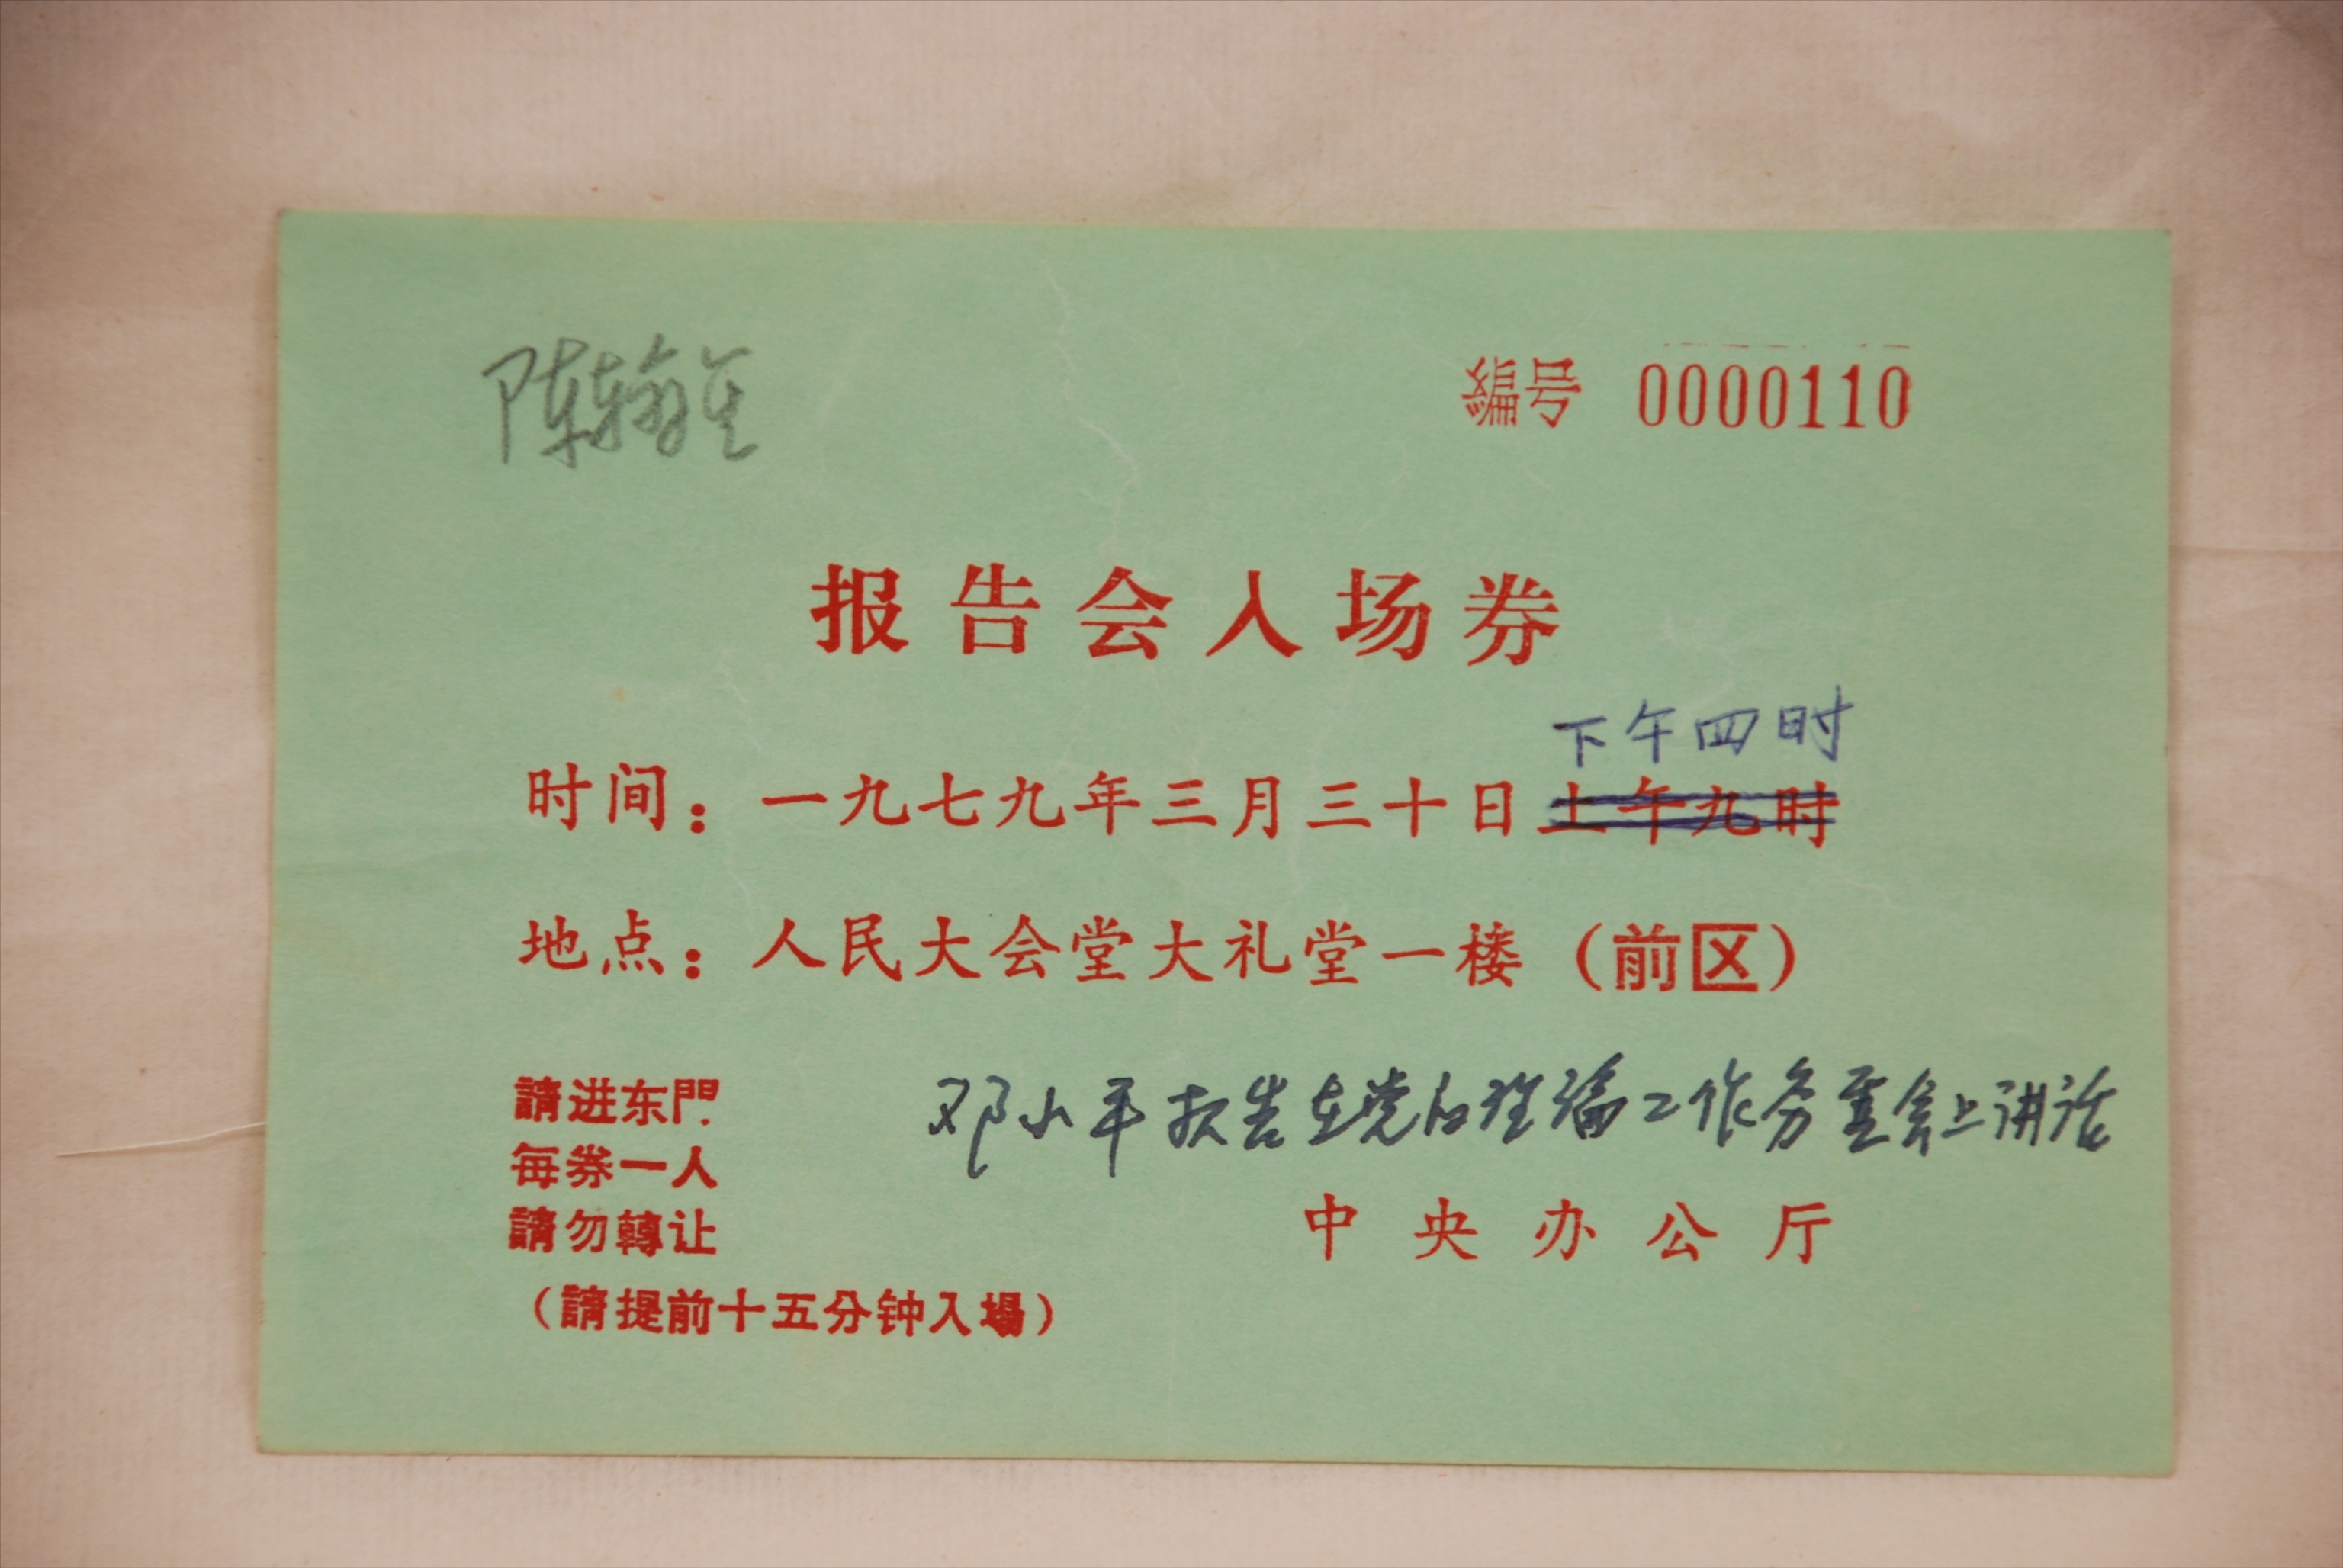 陈翰笙
編号 0000110
报告会入场券
下午四时
时间：一九七九年三月三十日上午九时
地点：人民大会堂大礼堂一楼（前区）
請进东門
邓小平报告在党的理论工作务虚会上讲话
每券一人
請勿轉让
中央办公厅
（請提前十五分钟入場）